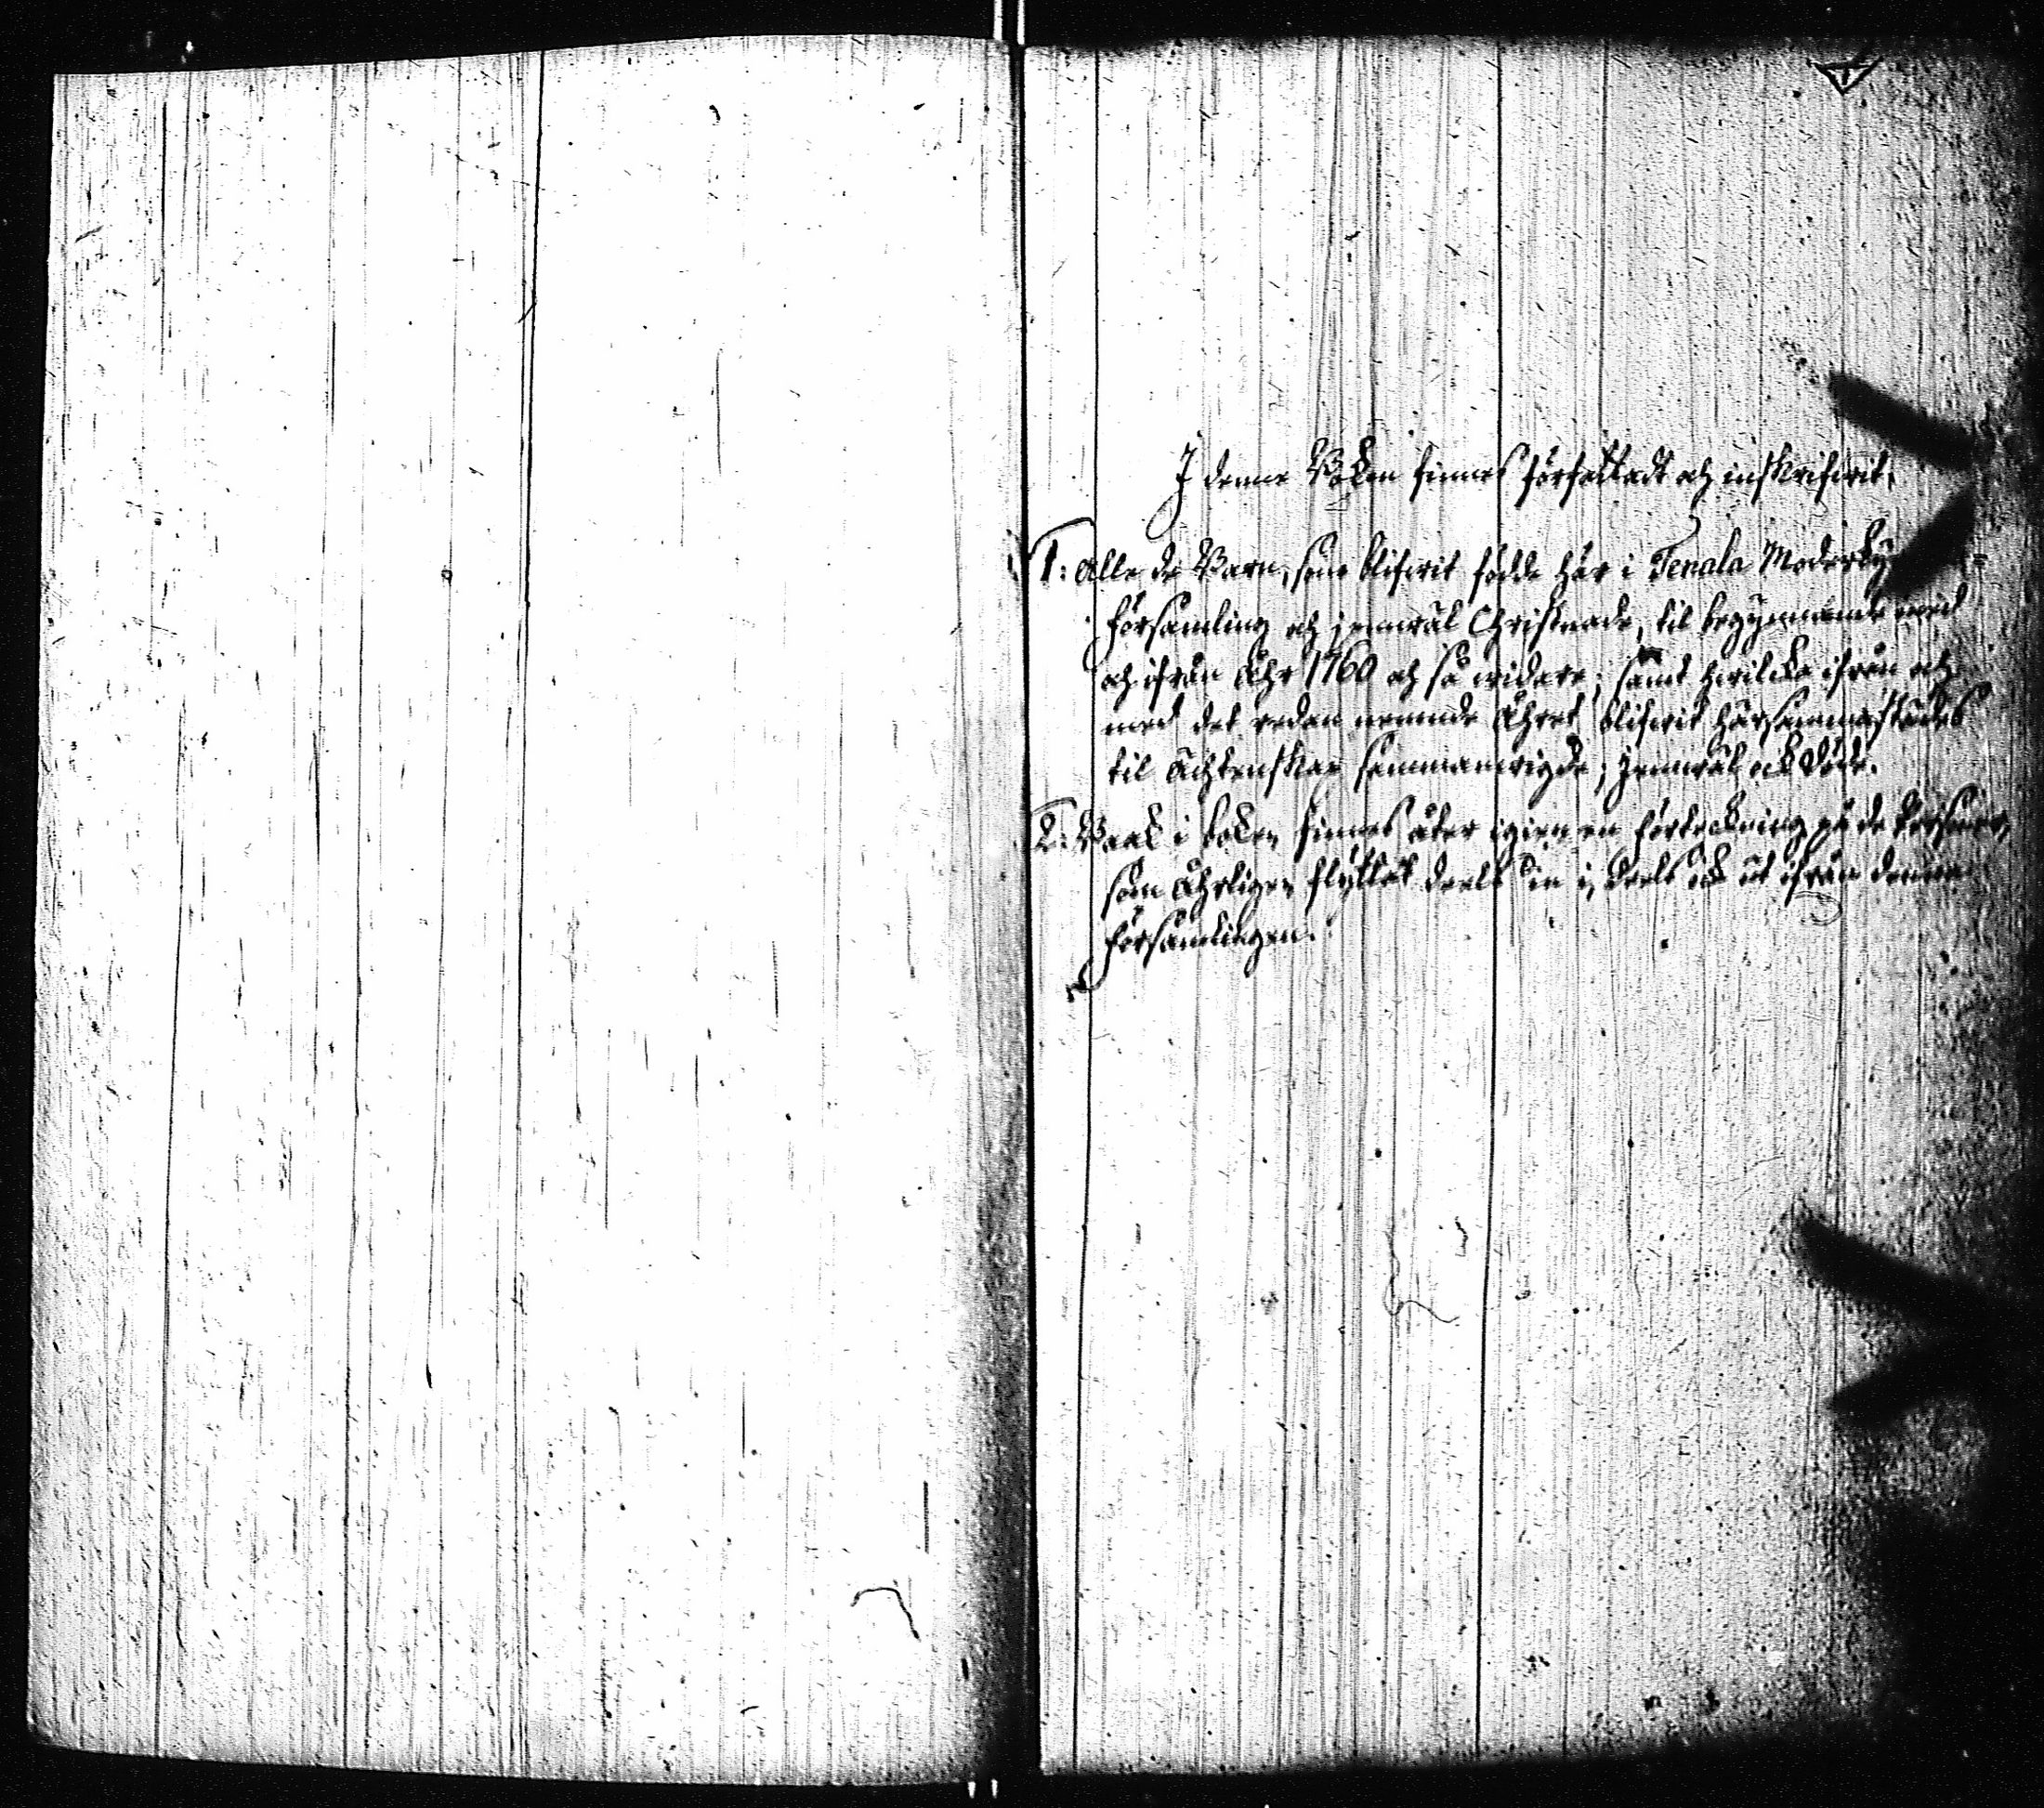 I denne Boken finnes författadt och inskrifwit,
1: Alle de Barn, som blifwit födde här i Tenala Moderky
Församling och jemwäl Christnade, til begynnande med
och ifrån Åhr 1760 och så widare; samt hwilcka ifrån och
med det redan nemnde Åhret blifwit härsammastädes
til Ächtenskap sammanwigde; jemwäl ock döde.
2: Baak i boken finnes åter igien en förteckning på de Personer,
som Åhrligen flyttat deels in i, deels ock ut ifrån denna
Församlingen.